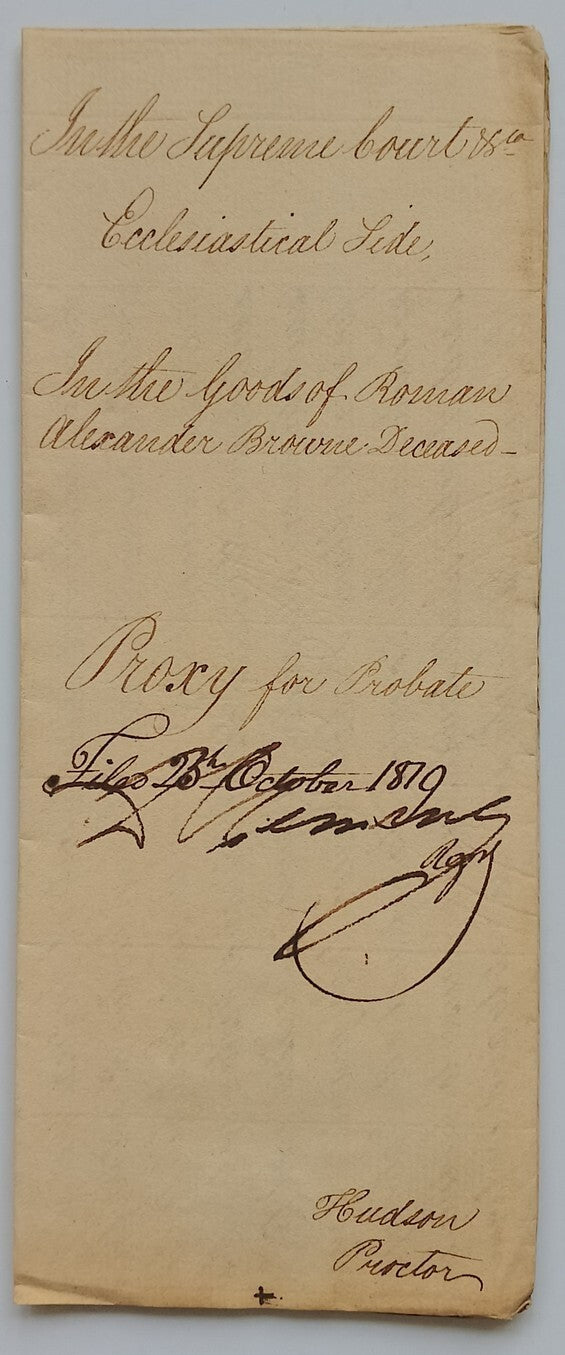 In the Supreme Court &ca
Ecclesiastical Side,
In the Goods of Roman
Alexander Browne Deceased-
Proxy for Probate
Filed October 18
Regr
Hudson
Proctor